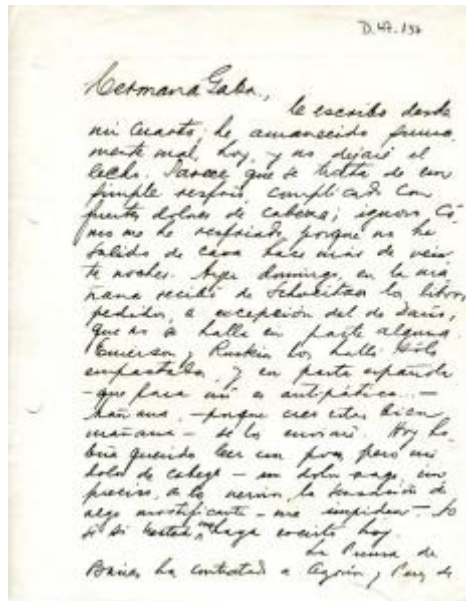 D.47.-137
Hermana Gaba,
le escribo desde
mi cuarto; he amanecido suma-
mente mal, hoy, y no dejaré el
lecho. Parece que se trata de un
simple resfrío, complicado con
fuertes dolores de cabeza; ignoro có-
mo me he resfriado, porque no he
salido de casa hace más de vein-
te noches. Ayer domingo, en la ma-
ñana recibí de los libros
pedidos, a excepción del de
que no se halla en parte alguna.
Emerson y Ruskin los hallé sólo
empastados, y en pasta española
-que para mí es antipática...-
mañana, -porque creo estar bien
mañana- se los enviaré. Hoy ha-
bría querido leer un poco, pero mi
dolor de cabeza - un dolor vago, im-
preciso, la sensación de
algo mortificante - me impiden. Yo
no sé si usted me haga hoy.
La Prensa de
Baires ha contratado a Azorín y Pérez de